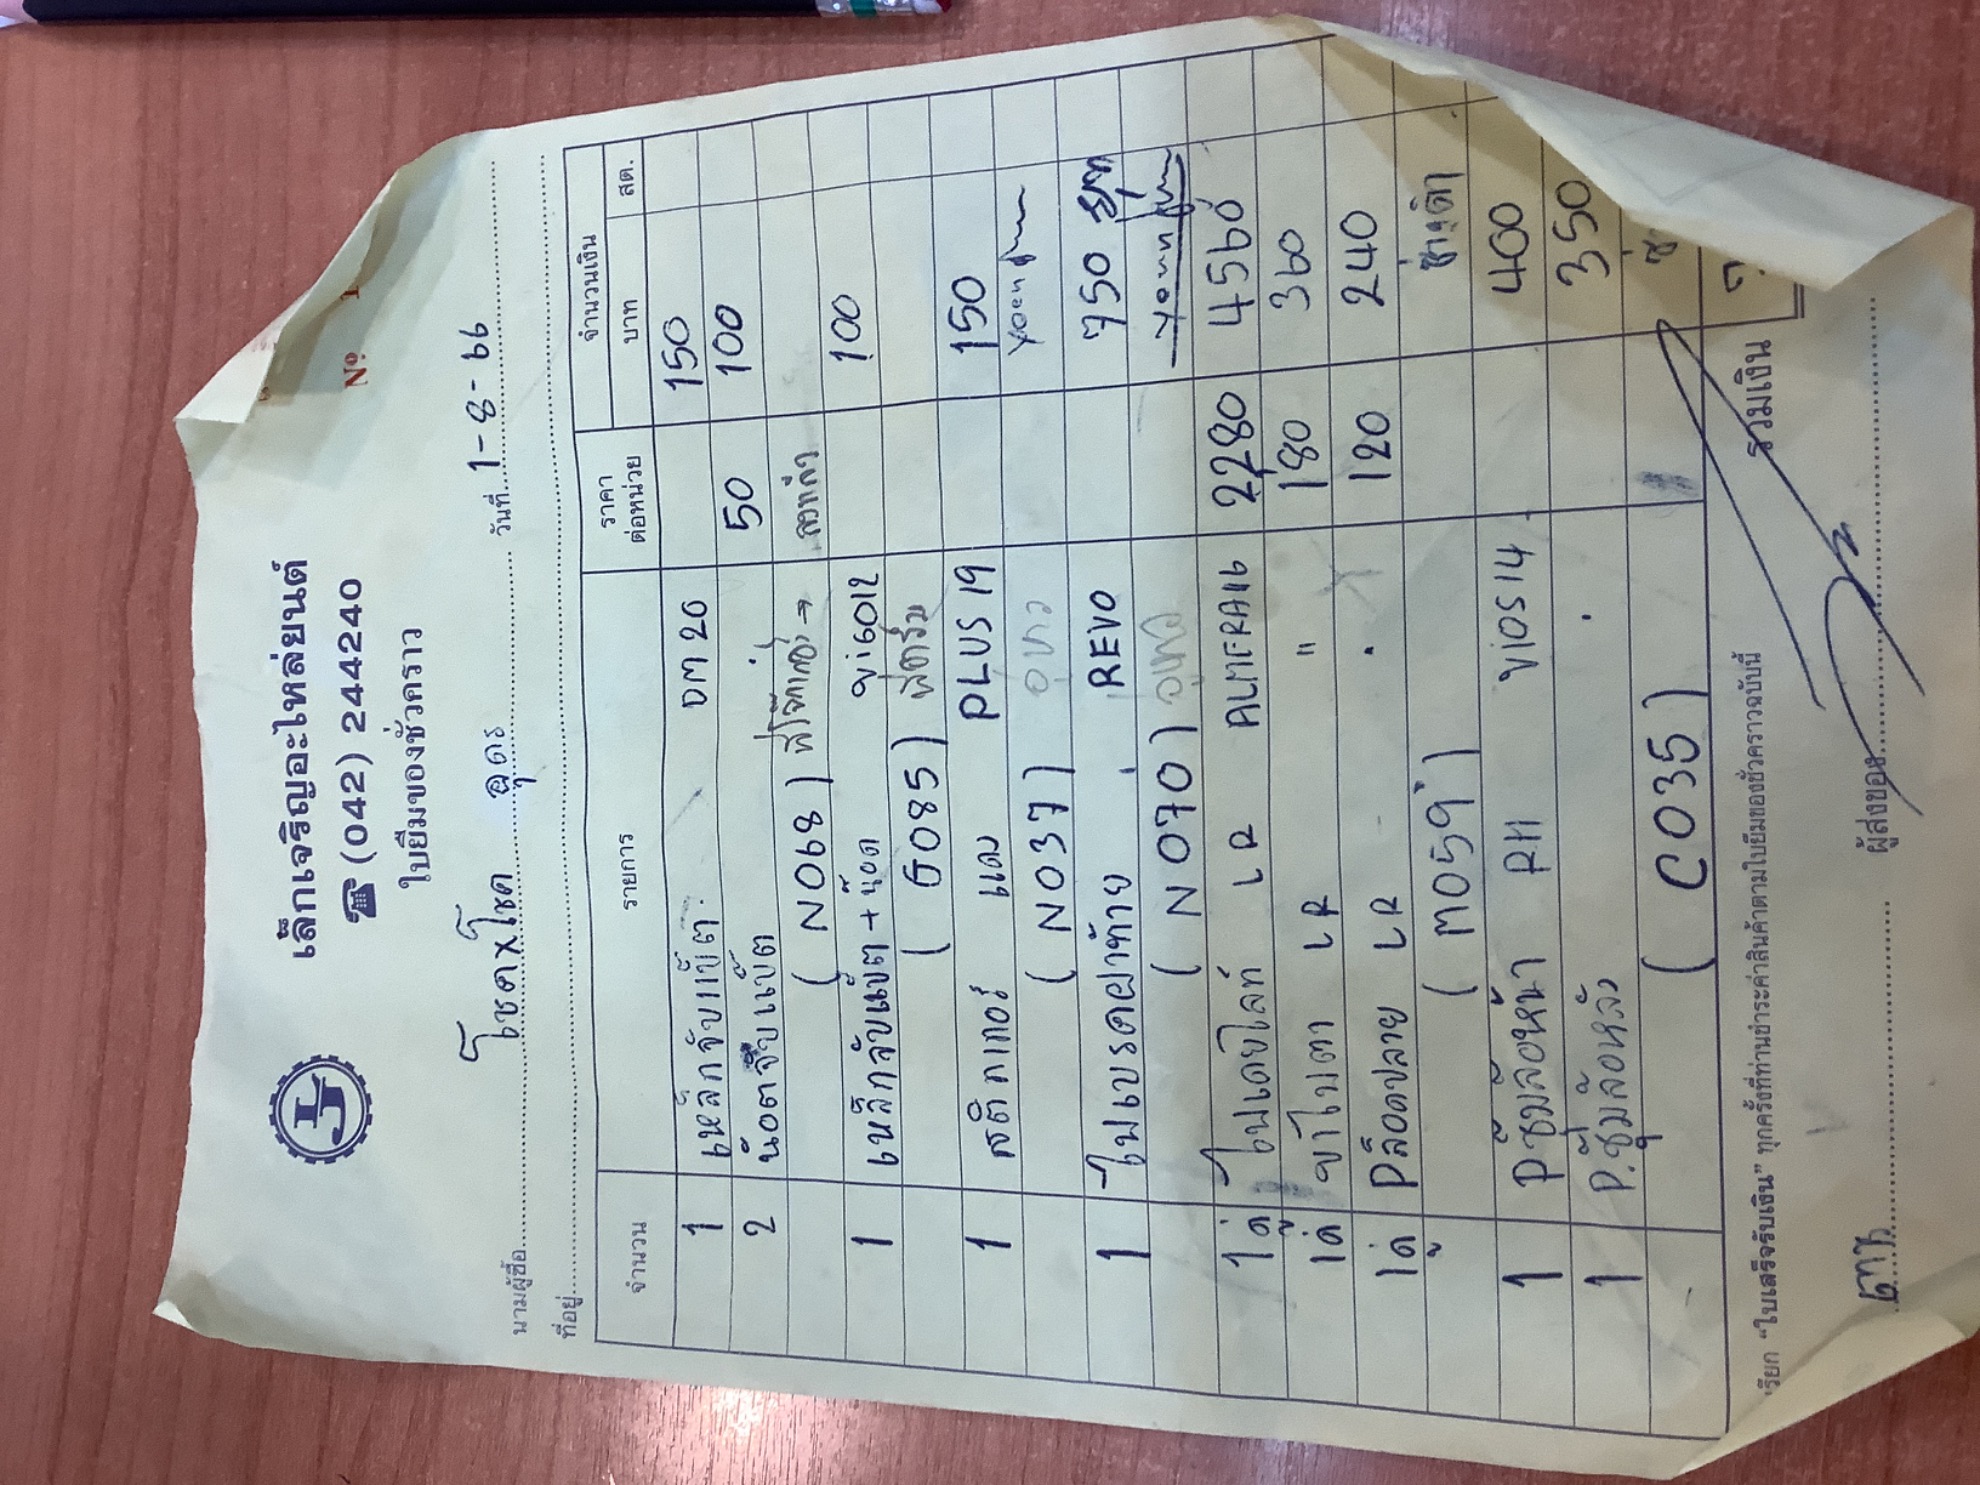 เล็กเจริญอะไหล่ยนต์
☎ (042) 244240
ใบยืมของชั่วคราว
Nº 1
นามผู้ซื้อ โชคxโชค อุดร วันที่ 1-8-66
ที่อยู่
จำนวน รายการ ราคาต่อหน่วย จำนวนเงิน บาท สต.
1 เหล็กจับแบ็ต DM 20 150
2 น๊อตจับแบ็ต 50 100
(N068)
1 เหล็กจับแบ็ต + น๊อต VIGO12 100
(G085)
1 สติกเกอร์ แดง PLUS 19 150
(N037)
1 ไฟเบรคฝาท้าย REVO 750
(N070)
1 คู่ ไฟเดย์ไลท์ LR ALMERA16 2280 4560
1 คู่ ขาไฟตา LR " 180 360
1 คู่ Pล็อคปลาย LR 120 240
(M059)
1 Pซุ้มล้อหน้า RH VIOS 14 400
1 P.ซุ้มล้อหลัง 350
(C035)
เรียก "ใบเสร็จรับเงิน" ทุกครั้งที่ท่านชำระค่าสินค้าตามใบยืมของชั่วคราวฉบับนี้ รวมเงิน
ผู้ส่งของ